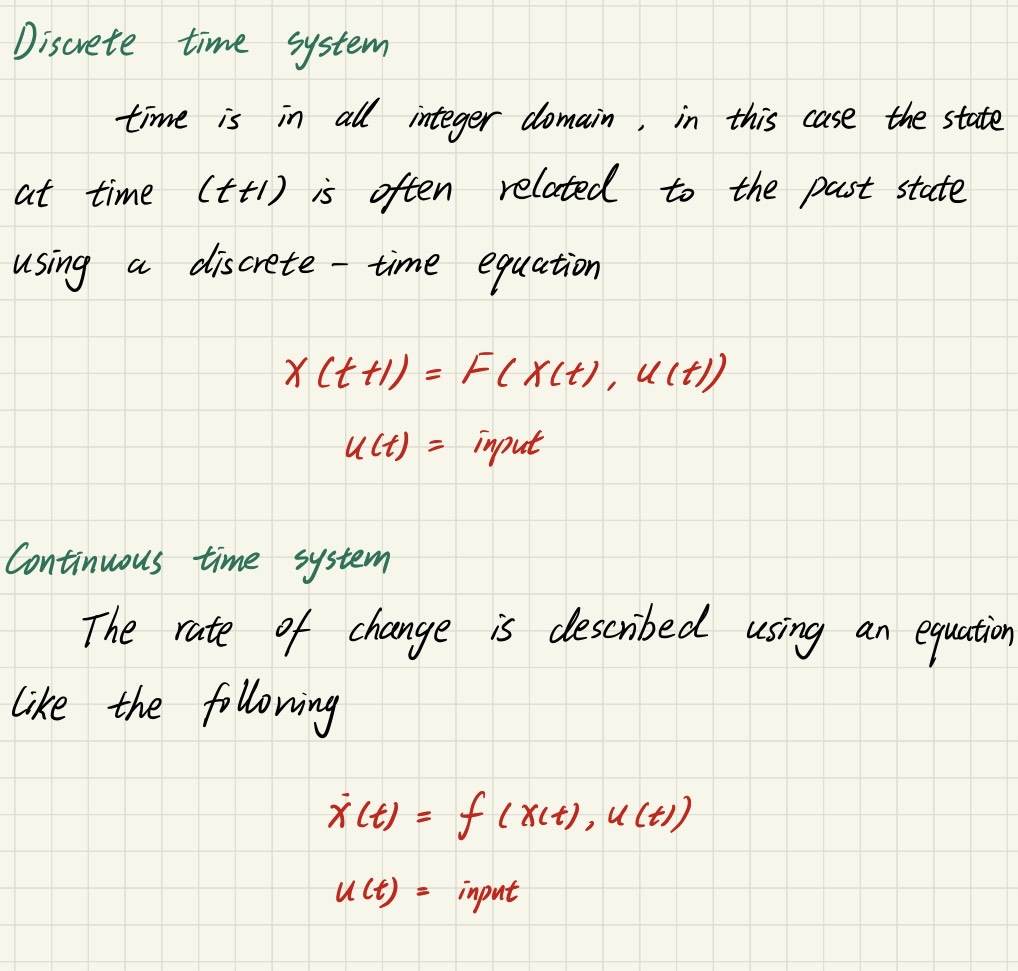 Discrete time system
time is in all integer domain, in this case the state
at time (t+1) is often related to the past state
using a discrete - time equation
X(t+1) = F(X(t), u(t))
u(t) = input
Continuous time system
The rate of change is described using an equation
like the following
ẋ(t) = f(x(t), u(t))
u(t) = input